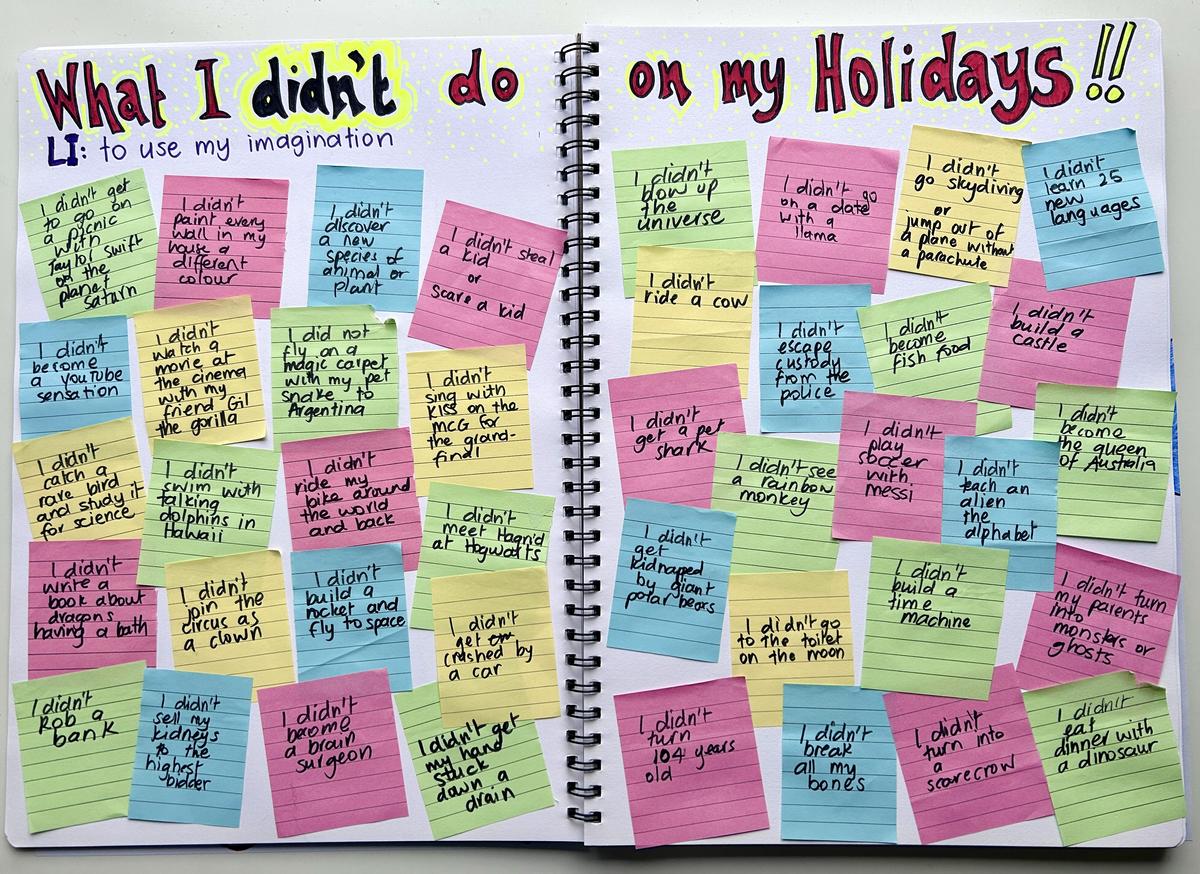 What I didn't do on my Holidays!!
LI: to use my imagination
I didn't get
to go on
a picnic
with
Taylor swift
on the
planet
saturn
I didn't
paint every
wall in my
house a
different
colour
I didn't
discover
a new
species of
animal or
plant
I didn't steal
a kid
or
scare a kid
I didn't
become
a YouTube
sensation
I didn't
watch a
movie at
the cinema
with my
friend Gil
the gorilla
I did not
fly on a
magic carpet
with my pet
snake to
Argentina
I didn't
sing with
KISS on the
MCG for
the grand-
final
I didn't
catch a
rare bird
and study it
for science
I didn't
swim with
talking
dolphins in
Hawaii
I didn't
ride my
bike around
the world
and back
I didn't
meet Hagrid
at Hogwarts
I didn't
write a
book about
dragons
having a bath
I didn't
join the
circus as
a clown
I didn't
build a
rocket and
fly to space
I didn't
get
crushed by
a car
I didn't
Rob a
bank
I didn't
sell my
kidneys
to the
highest
bidder
I didn't
become
a brain
surgeon
I didn't get
my hand
stuck
down a
drain
I didn't
blow up
the
universe
I didn't go
on a date
with a
llama
I didn't
go skydiving
or
jump out of
a plane without
a parachute
I didn't
learn 25
new
languages
I didn't
ride a cow
I didn't
escape
custody
from the
police
I didn't
become
fish food
I didn't
build a
castle
I didn't
get a pet
shark
I didn't see
a rainbow
monkey
I didn't
play
soccer
with
messi
I didn't
teach an
alien
the
alphabet
I didn't
become
the queen
of Australia
I didn't
get
kidnaped
by giant
polar bears
I didn't go
to the toilet
on the moon
I didn't
build a
time
machine
I didn't turn
my parents
into
monsters or
ghosts
I didn't
turn
104 years
old
I didn't
break
all my
bones
I didn't
turn into
a
scarecrow
I didn't
eat
dinner with
a dinosaur